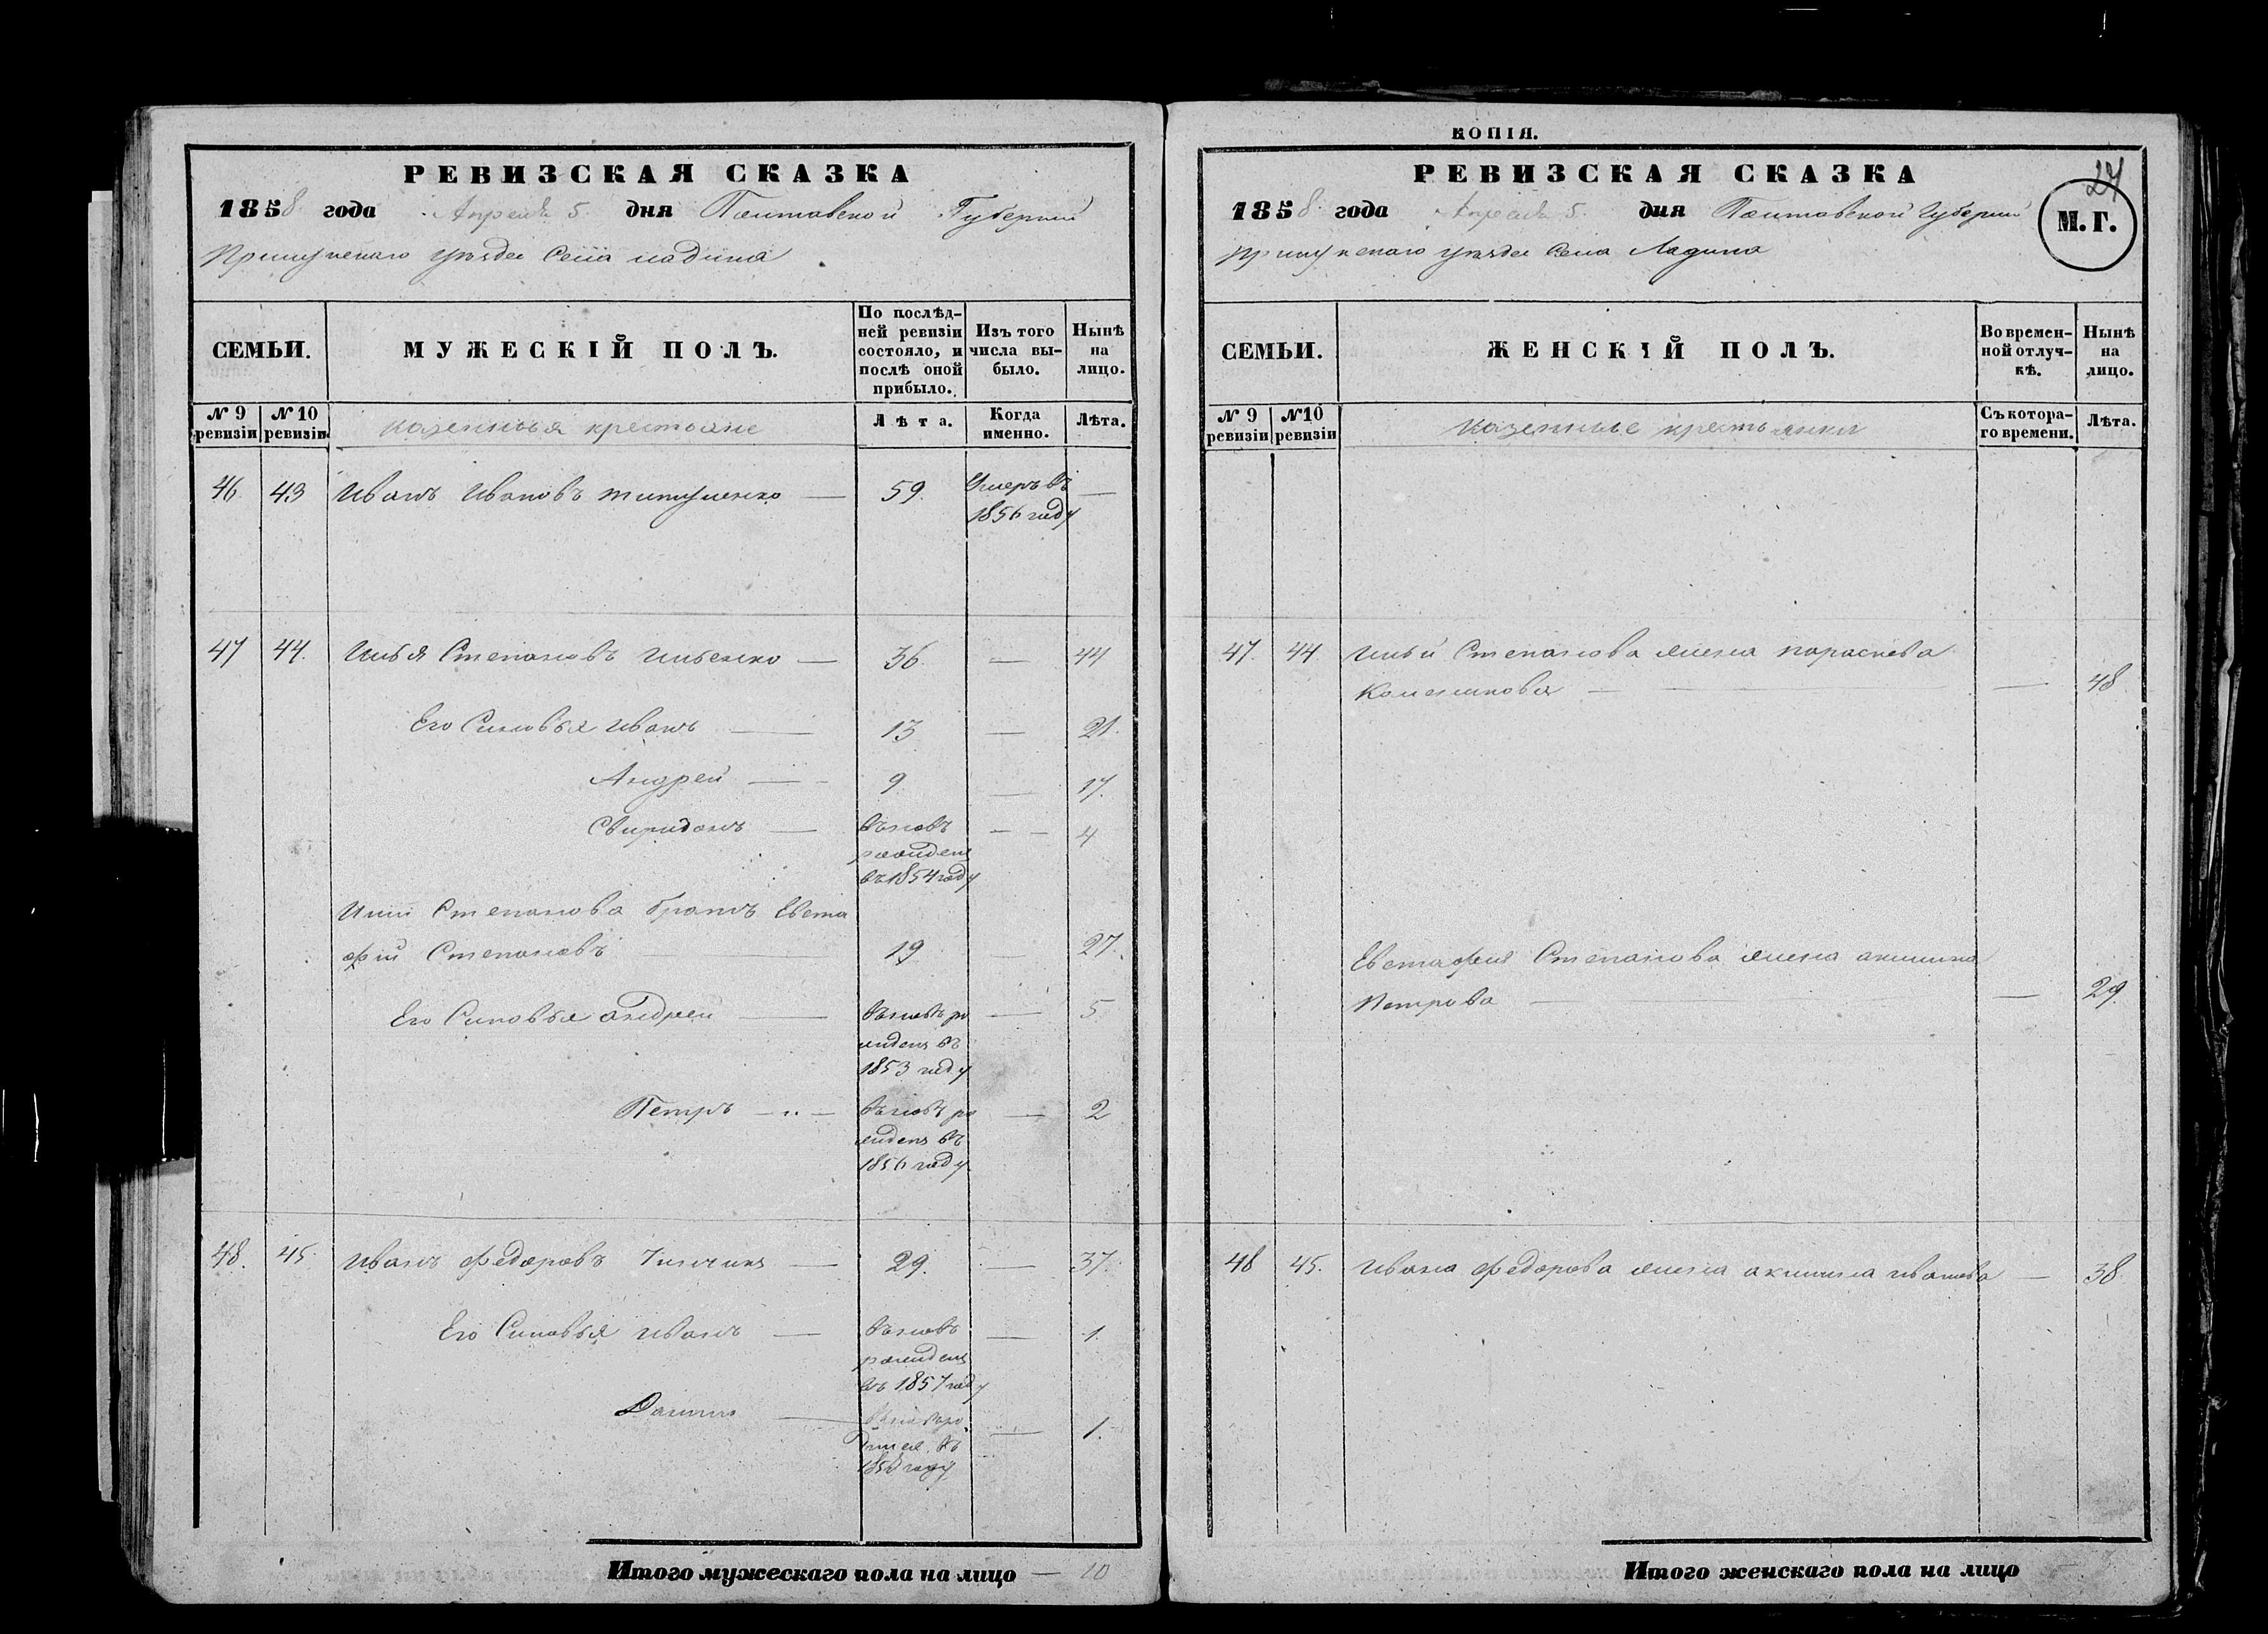 РЕВИЗСКАЯ СКАЗКА
1858 года Апреля 5 дня Полтавской Губернии
Прилукскаго уѣзда Села Ладина
СЕМЬИ.
МУЖЕСКІЙ ПОЛЪ.
По послѣд-
ней ревизіи
состояло, и
послѣ оной
прибыло.
Изъ того
числа вы-
было.
Нынѣ
на
лицо.
№ 9
ревизіи
№ 10
ревизіи
казенныя крестьяне
Лѣта.
Когда
именно.
Лѣта.
46. 43 Иванъ Ивановъ — 59. Умеръ въ —
1856 году
47 44. Илья Степановъ Ильенко — 36. — 44
Его Сыновья Иванъ — 13 — 21.
Андрей — 9. — 17.
Свиридонъ — вновь — 4
рожденъ
въ 1854 году
Ильи Степанова братъ Евста
фій Степановъ — 19 — 27.
Его Сыновья Андрей — вновь ро — 5
жденъ въ
1853 году
Петръ — вновь ро — 2
жденъ въ
1856 году
48. 45. Иванъ Федоровъ — 29. — 37.
Его Сыновья Иванъ — вновь — 1.
рожденъ
въ 1857 году
— 1.
году
Итого мужескаго пола на лицо — 10
КОПІЯ.
27
РЕВИЗСКАЯ СКАЗКА
1858 года Апреля 5. дня Полтавской Губерніи
Прилукскаго уѣзда Села Ладина
М. Г.
СЕМЬИ.
ЖЕНСКІЙ ПОЛЪ.
Во времен-
ной отлуч-
кѣ.
Нынѣ
на
лицо.
№ 9
ревизіи
№10
ревизіи
казенные крестьянки
Съ котора-
го времени.
Лѣта.
47. 44. Ильи Степанова жена Параскева
— — 48.
Евстафія Степанова жена Акилина
Петрова — — 29.
48 45. Ивана Федорова жена Акилина Иванова — 38.
Итого женскаго пола на лицо